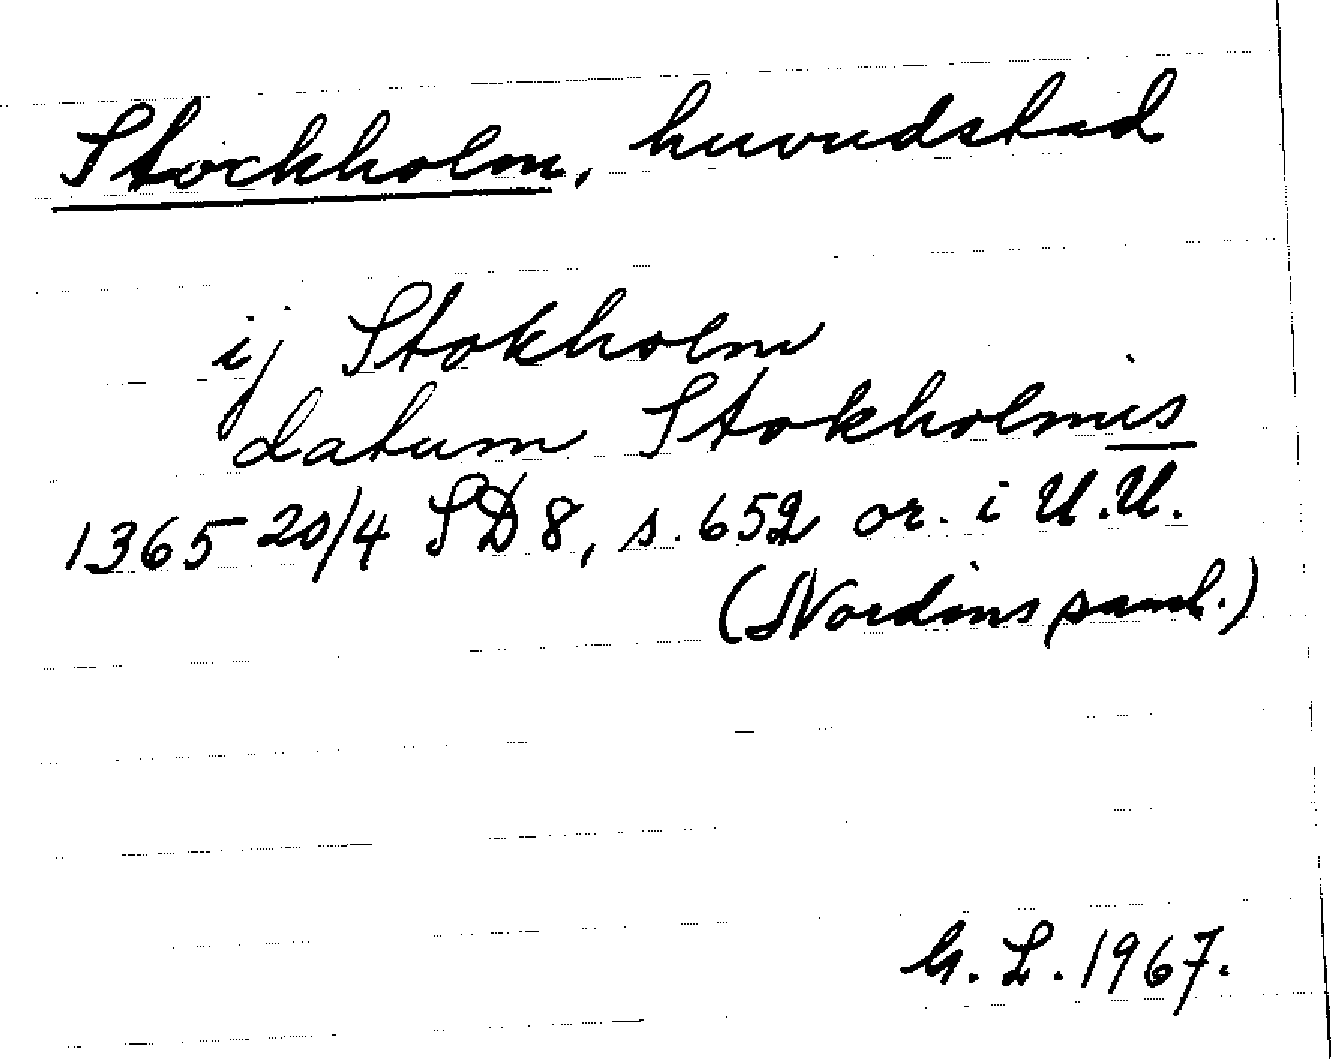 Stockholm, huvudstad
ij Stokholm
datum Stokholmis
1365 20/4 SD 8, s. 652 or. i U.U.
(Nordins saml.)
G. L. 1967.